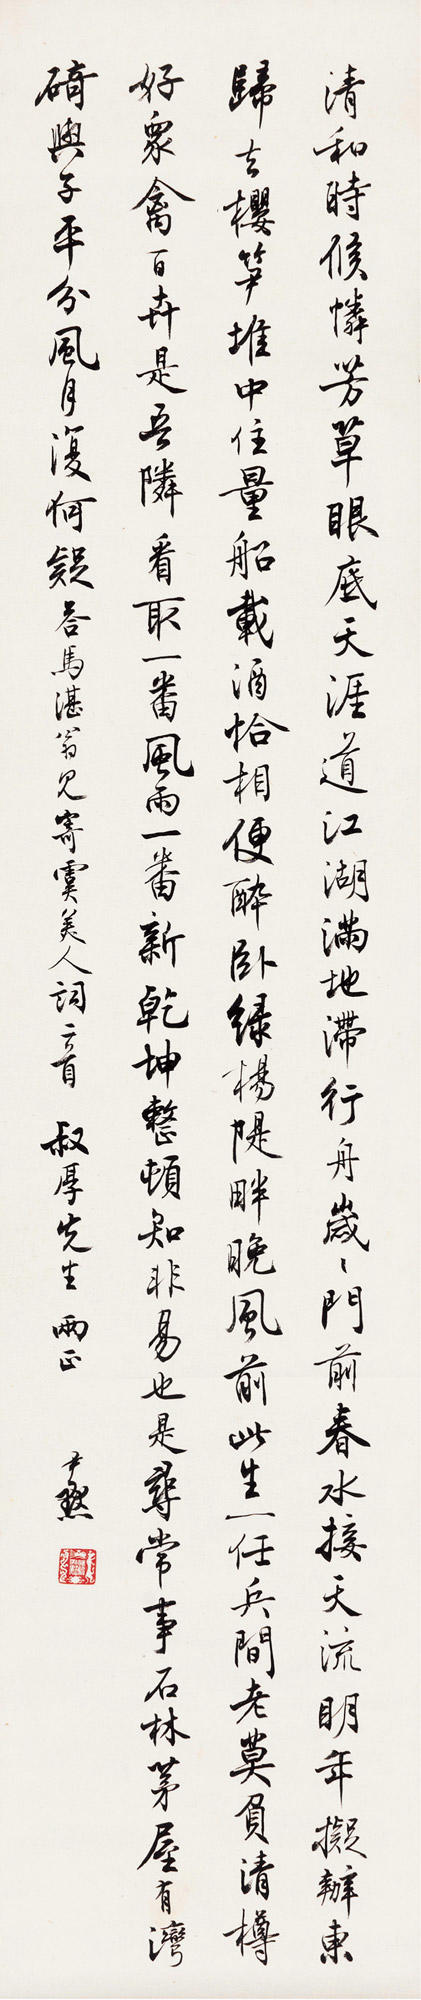 清和時候憐芳草眼底天涯道江湖滿地滯行舟歲〻門前春水接天流明年擬辦東
歸去櫻笋堆中住量船載酒恰相便醉臥綠楊隄畔晚風前此生一任兵間老莫負清樽
好眾禽百卉是吾隣看取一番風雨一番新乾坤整頓知非易也是尋常事石林茅屋有灣
碕與子平分風月復何疑答馬湛翁見寄虞美人詞二首 叔厚先生兩正 尹默